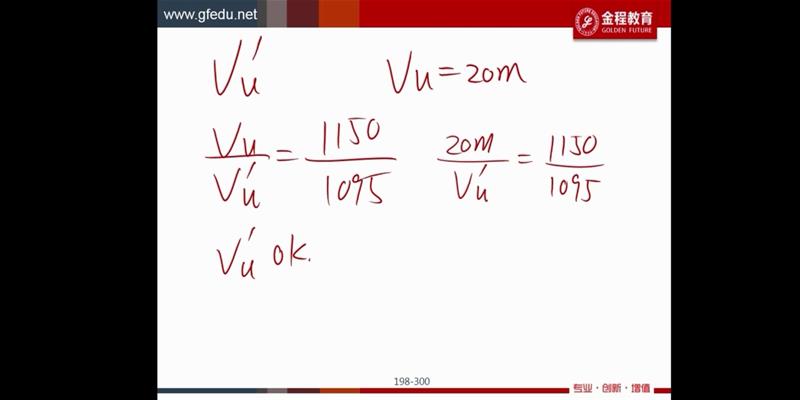 www.gfedu.net
金程教育
GOLDEN FUTURE
Vu' Vu=20m
Vu/Vu' = 1150/1095 20m/Vu' = 1150/1095
Vu' ok.
198-300
专业·创新·增值